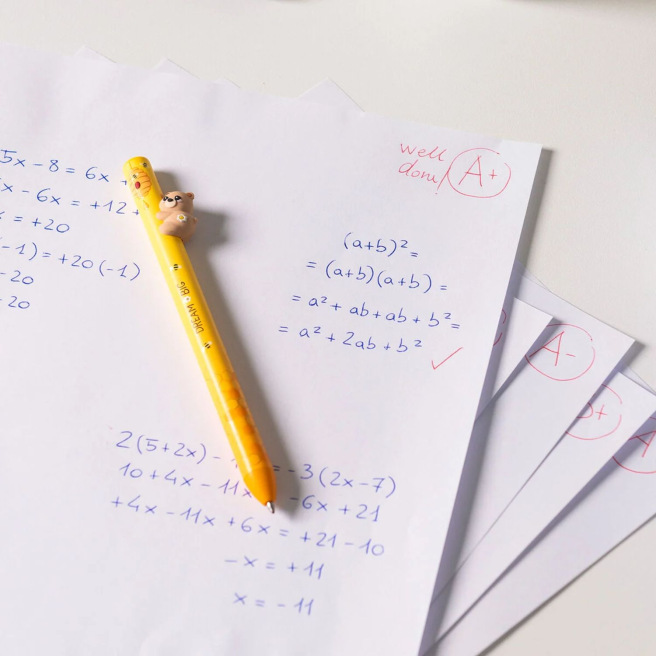 5x - 8 = 6x +
x - 6x = +12 +
= +20
-1) = +20 (-1)
-20
-20
well
done!
A+
(a+b)² =
= (a+b)(a+b) =
= a² + ab + ab + b² =
= a² + 2ab + b²
✓
DREAM BIG
2(5+2x) - = -3(2x-7)
10 + 4x - 11x -6x + 21
+4x - 11x + 6x = +21 - 10
-x = +11
x = -11
A-
+
A